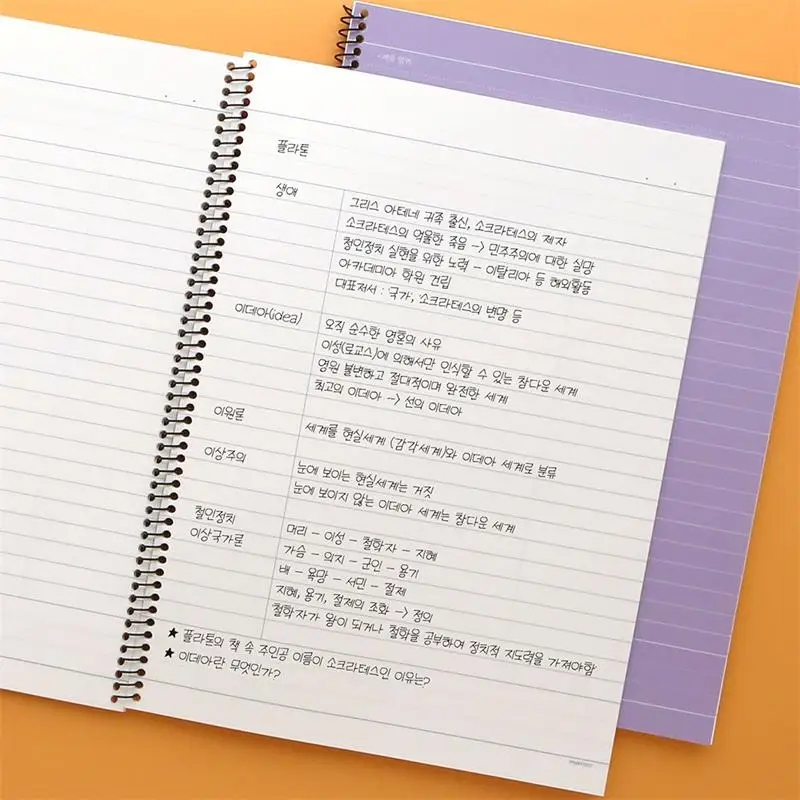 플라톤
생애
그리스 아테네 귀족 출신, 소크라테스의 제자
소크라테스의 억울한 죽음 -> 민주주의에 대한 실망
철인정치 실현을 위한 노력 - 이탈리아 등 해외활동
아카데미아 학원 건립
대표저서 : 국가, 소크라테스의 변명 등
이데아(idea)
오직 순수한 영혼의 사유
이성(로교스)에 의해서만 인식할 수 있는 참다운 세계
영원 불변하고 절대적이며 완전한 세계
최고의 이데아 -> 선의 이데아
이원론
세계를 현실세계 (감각세계)와 이데아 세계로 분류
이상주의
눈에 보이는 현실세계는 거짓
눈에 보이지 않는 이데아 세계는 참다운 세계
철인정치
이상국가론
머리 - 이성 - 철학자 - 지혜
가슴 - 의지 - 군인 - 용기
배 - 욕망 - 서민 - 절제
지혜, 용기, 절제의 조화 -> 정의
철학자가 왕이 되거나 철학을 공부하여 정치적 지도력을 가져야함
★ 플라톤의 책 속 주인공 이름이 소크라테스인 이유는?
★ 이데아란 무엇인가?